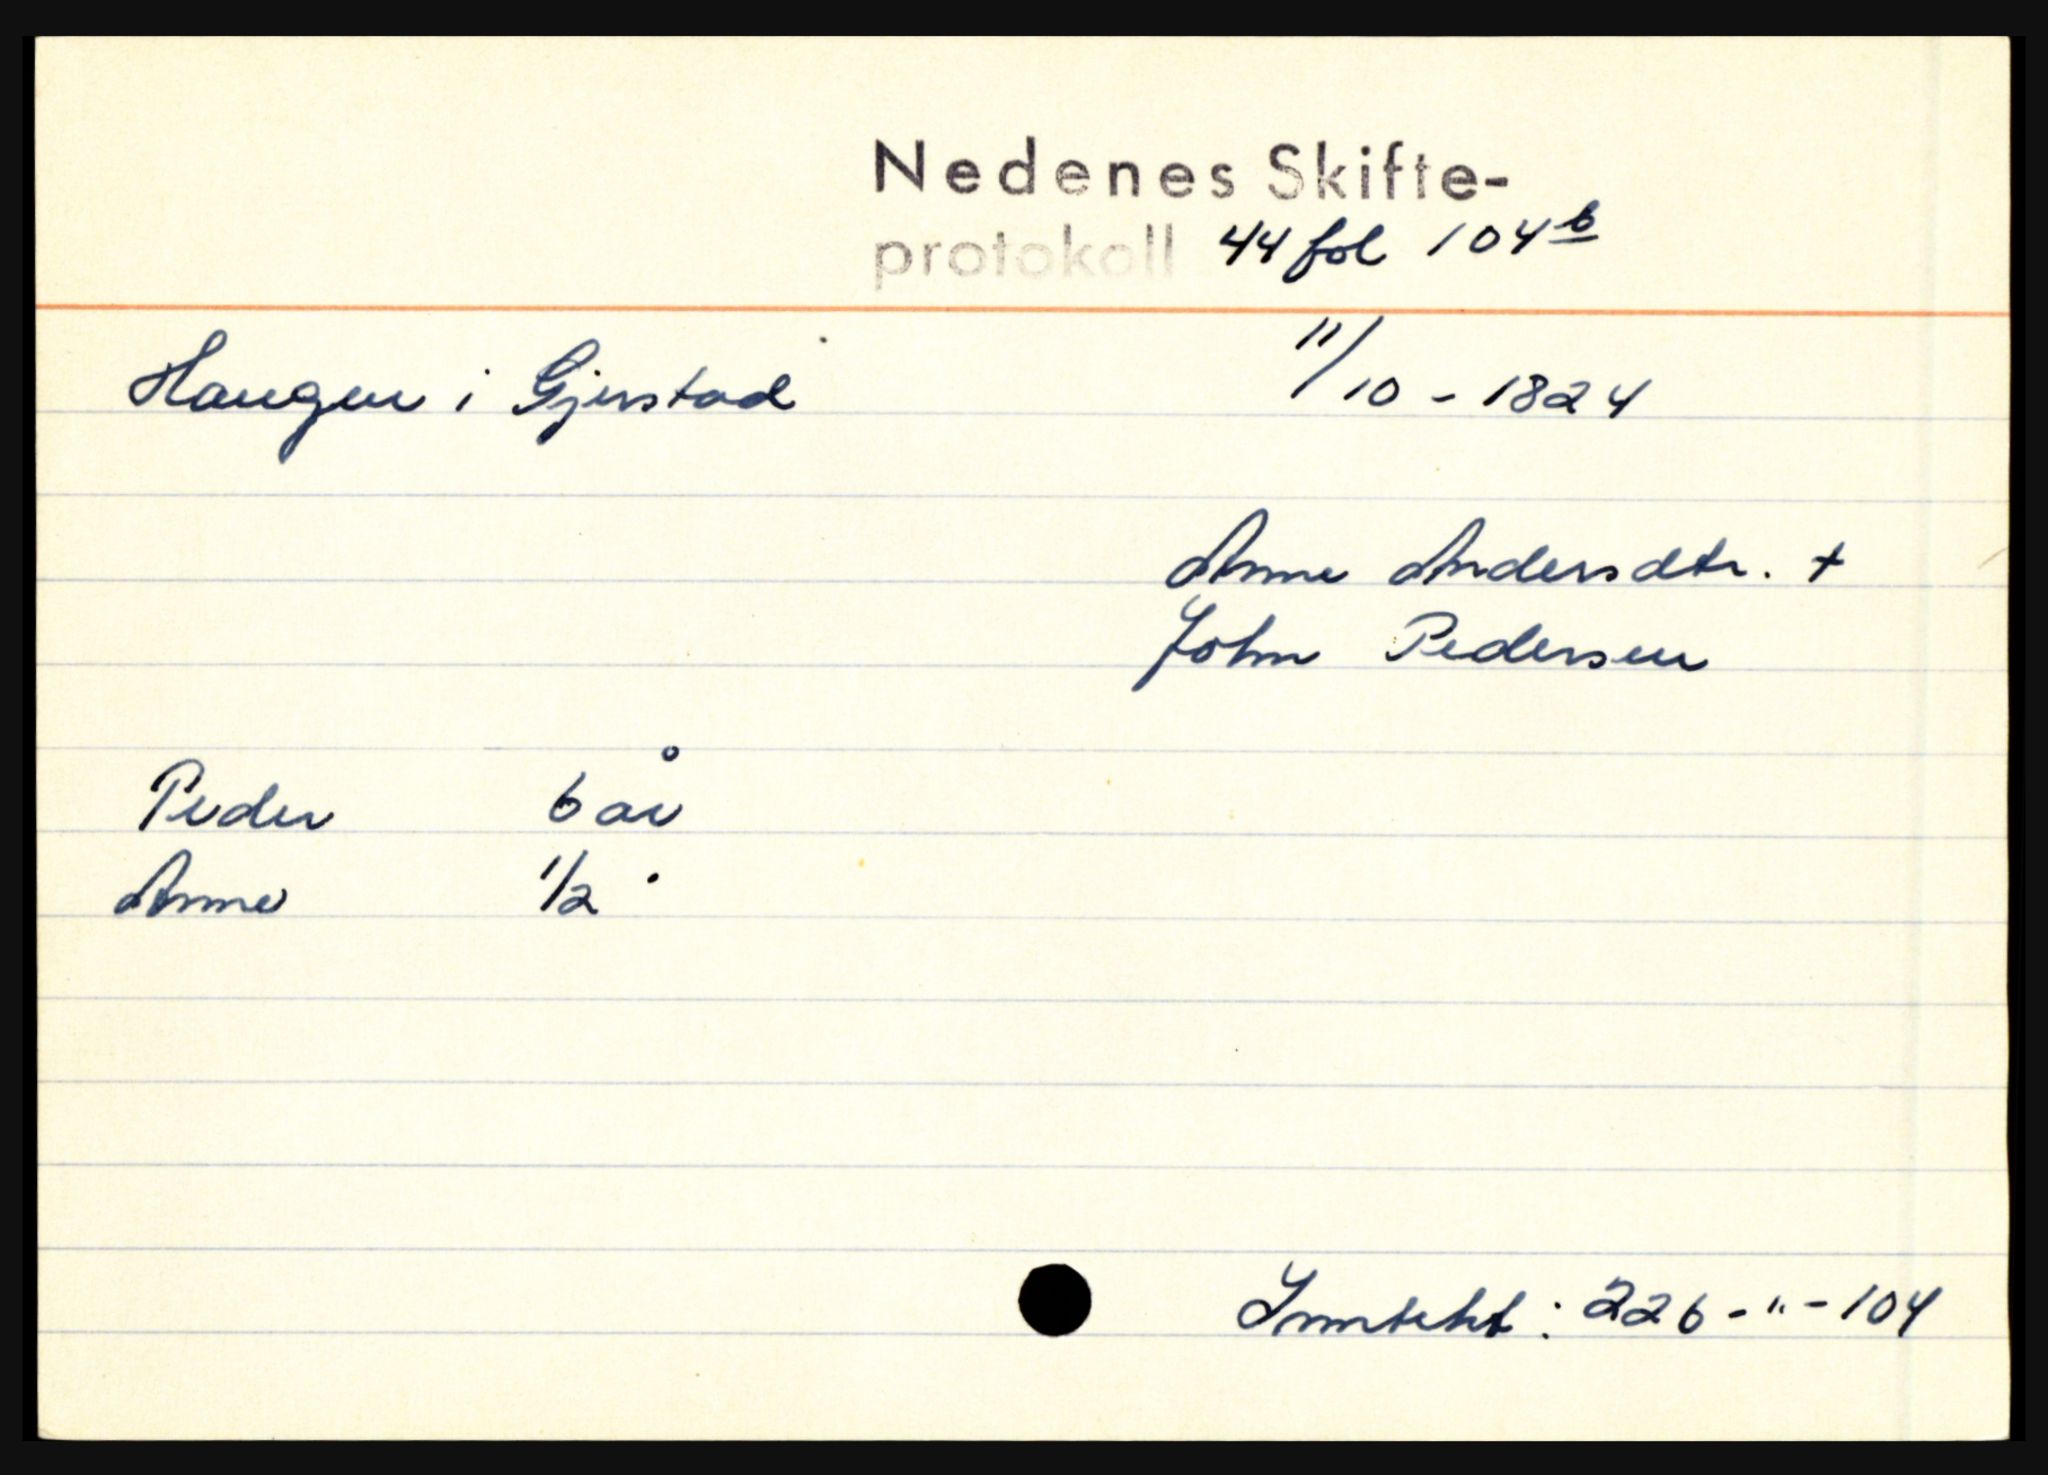 Nedenes Skifte-
protokoll 44 fol 104b
Haugen i Gjerstad 11/10 - 1824
Anne Andersdtr. +
John Pedersen
Peder 6 år
Anne 1/2 "
Inntekt : 226 - " - 104